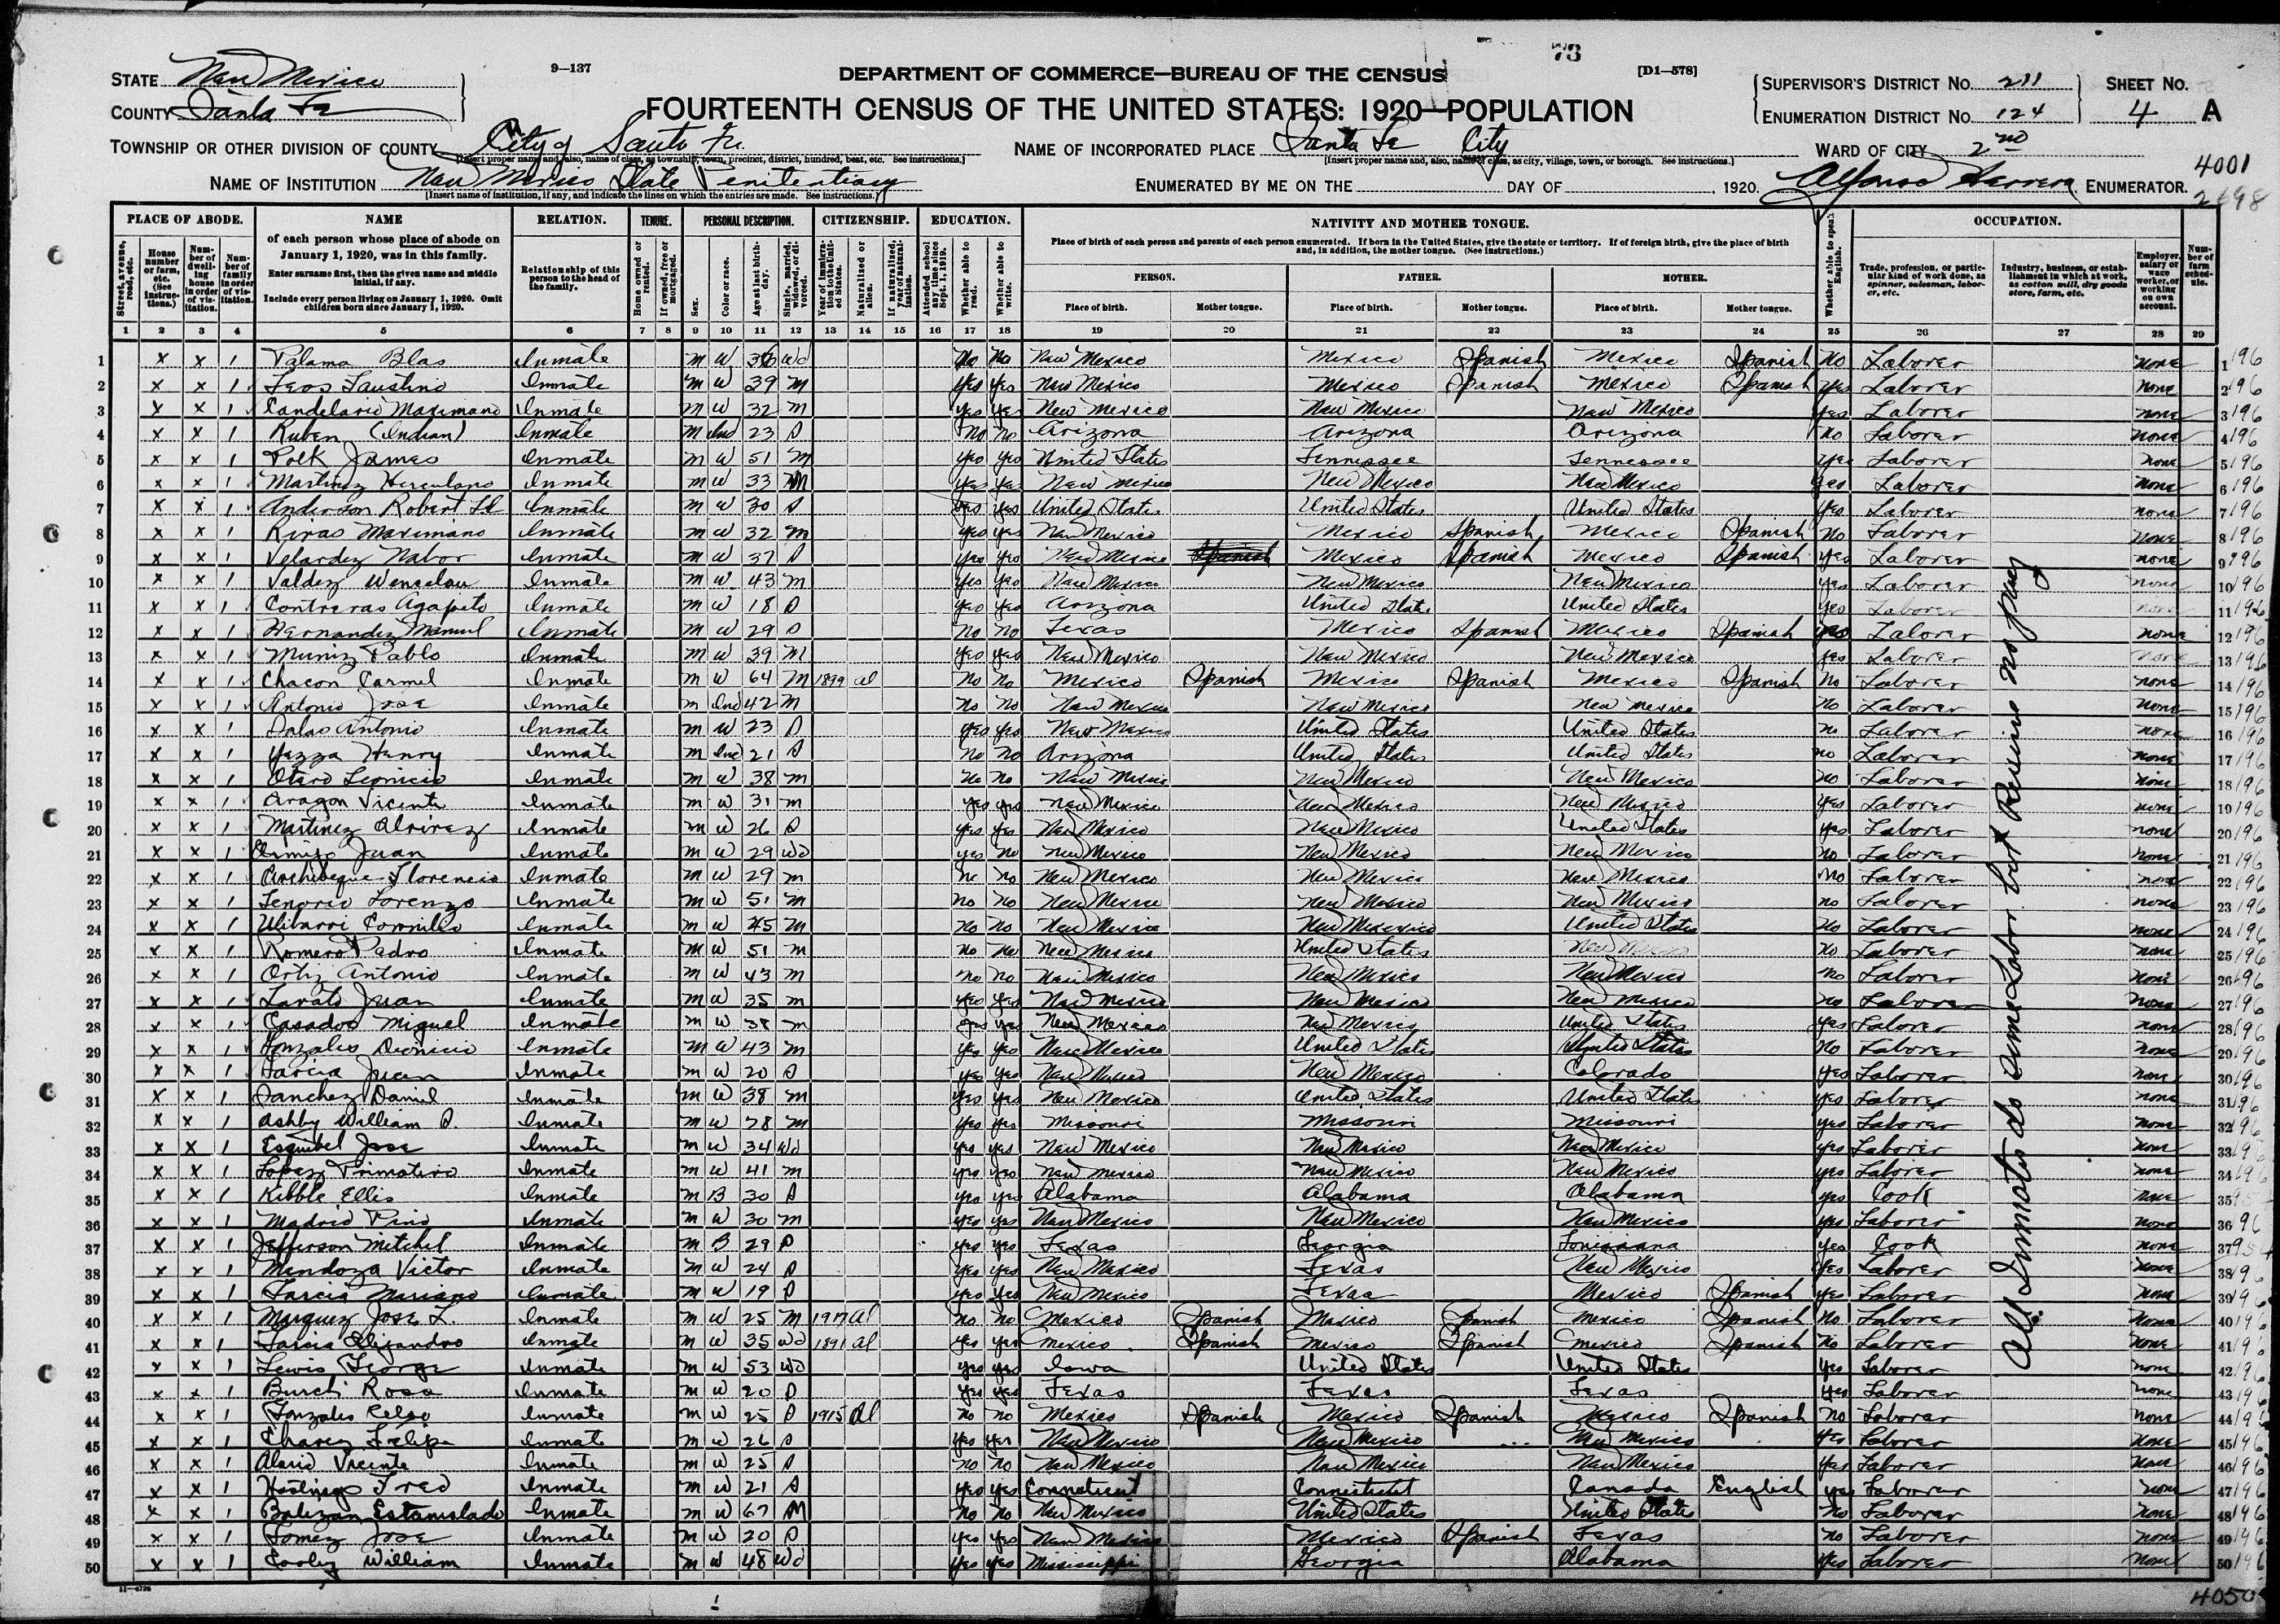 73
9—137
DEPARTMENT OF COMMERCE—BUREAU OF THE CENSUS
[D1—578]
FOURTEENTH CENSUS OF THE UNITED STATES: 1920—POPULATION
STATE New Mexico
COUNTY Santa Fe
SUPERVISOR'S DISTRICT No. 211
ENUMERATION DISTRICT No. 124
SHEET No. 4 A
TOWNSHIP OR OTHER DIVISION OF COUNTY City of Santa Fe
[Insert proper name and, also, name of class, as township, town, precinct, district, hundred, beat, etc. See instructions.]
NAME OF INCORPORATED PLACE Santa Fe City
[Insert proper name and, also, name of class, as city, village, town, or borough. See instructions.]
WARD OF CITY 2nd
4001
NAME OF INSTITUTION New Mexico State Penitentiary
[Insert name of institution, if any, and indicate the lines on which the entries are made. See instructions.]
ENUMERATED BY ME ON THE DAY OF , 1920. Alfonso Herrera ENUMERATOR.
2698
PLACE OF ABODE. NAME RELATION. TENURE. PERSONAL DESCRIPTION. CITIZENSHIP. EDUCATION. NATIVITY AND MOTHER TONGUE. OCCUPATION.
of each person whose place of abode on January 1, 1920, was in this family.
Enter surname first, then the given name and middle initial, if any.
Include every person living on January 1, 1920. Omit children born since January 1, 1920.
Relationship of this person to the head of the family.
Place of birth of each person and parents of each person enumerated. If born in the United States, give the state or territory. If of foreign birth, give the place of birth and, in addition, the mother tongue. (See instructions.)
PERSON. FATHER. MOTHER.
Place of birth. Mother tongue. Place of birth. Mother tongue. Place of birth. Mother tongue.
Whether able to speak English.
Trade, profession, or particular kind of work done, as spinner, salesman, laborer, etc.
Industry, business, or establishment in which at work, as cotton mill, dry goods store, farm, etc.
Employer, salary or wage worker, or working on own account.
Number of farm schedule.
1 2 3 4 5 6 7 8 9 10 11 12 13 14 15 16 17 18 19 20 21 22 23 24 25 26 27 28 29
1 x x 1 Palama Blas Inmate M W 36 Wd No No New Mexico Mexico Spanish Mexico Spanish No Laborer none 1 196
2 x x 1 Leos Faustino Inmate M W 39 M Yes Yes New Mexico Mexico Spanish Mexico Spanish Yes Laborer none 2 196
3 x x 1 Candelario Maximano Inmate M W 32 M Yes Yes New Mexico New Mexico New Mexico Yes Laborer none 3 196
4 x x 1 Ruben (Indian) Inmate M Ind 23 S No No Arizona Arizona Arizona No Laborer none 4 196
5 x x 1 Polk James Inmate M W 51 M Yes Yes United States Tennessee Tennessee Yes Laborer none 5 196
6 x x 1 Martinez Herculano Inmate M W 33 M Yes Yes New Mexico New Mexico New Mexico Yes Laborer none 6 196
7 x x 1 Anderson Robert Inmate M W 30 S Yes Yes United States United States United States Yes Laborer none 7 196
8 x x 1 Rivas Maximiano Inmate M W 32 M Yes Yes New Mexico Mexico Spanish Mexico Spanish No Laborer none 8 196
9 x x 1 Velardez Nabor Inmate M W 37 S Yes Yes New Mexico Spanish Mexico Spanish Mexico Spanish Yes Laborer none 9 196
10 x x 1 Valdez Wencelau Inmate M W 43 M Yes Yes New Mexico New Mexico New Mexico Yes Laborer none 10 196
11 x x 1 Contreras Agapito Inmate M W 18 S Yes Yes Arizona United States United States Yes Laborer none 11 196
12 x x 1 Hernandez Manuel Inmate M W 29 S No No Texas Mexico Spanish Mexico Spanish Yes Laborer none 12 196
13 x x 1 Muniz Pablo Inmate M W 39 M Yes Yes New Mexico New Mexico New Mexico Yes Laborer none 13 196
14 x x 1 Chacon Carmel Inmate M W 64 M 1899 Al No No Mexico Spanish Mexico Spanish Mexico Spanish No Laborer none 14 196
15 x x 1 Antonio Jose Inmate M Ind 42 M No No New Mexico New Mexico New Mexico No Laborer none 15 196
16 x x 1 Salas Antonio Inmate M W 23 S Yes Yes New Mexico United States United States No Laborer none 16 196
17 x x 1 Yazza Henry Inmate M Ind 21 S No No Arizona United States United States No Laborer none 17 196
18 x x 1 Otero Leonicio Inmate M W 38 M No No New Mexico New Mexico New Mexico No Laborer none 18 196
19 x x 1 Aragon Vicente Inmate M W 31 M Yes Yes New Mexico New Mexico New Mexico Yes Laborer none 19 196
20 x x 1 Martinez Alvirez Inmate M W 26 S Yes Yes New Mexico New Mexico United States Yes Laborer none 20 196
21 x x 1 Armijo Juan Inmate M W 29 Wd Yes No New Mexico New Mexico New Mexico No Laborer none 21 196
22 x x 1 Archibeque Florencio Inmate M W 29 M No No New Mexico New Mexico New Mexico No Laborer none 22 196
23 x x 1 Tenorio Lorenzo Inmate M W 51 M No No New Mexico New Mexico New Mexico No Laborer none 23 196
24 x x 1 Ulibarri Cornilio Inmate M W 45 M No No New Mexico New Mexico United States No Laborer none 24 196
25 x x 1 Romero Pedro Inmate M W 51 M No No New Mexico United States New Mexico No Laborer none 25 196
26 x x 1 Ortiz Antonio Inmate M W 43 M No No New Mexico New Mexico New Mexico No Laborer none 26 196
27 x x 1 Lavato Juan Inmate M W 35 M Yes Yes New Mexico New Mexico New Mexico No Laborer none 27 196
28 x x 1 Casados Miguel Inmate M W 38 M Yes Yes New Mexico New Mexico United States Yes Laborer none 28 196
29 x x 1 Gonzales Dionicio Inmate M W 43 M Yes Yes New Mexico United States United States No Laborer none 29 196
30 x x 1 Garcia Juan Inmate M W 20 S Yes Yes New Mexico New Mexico Colorado Yes Laborer none 30 196
31 x x 1 Sanchez Daniel Inmate M W 38 M Yes Yes New Mexico United States United States Yes Laborer none 31 196
32 x x 1 Ashby William S. Inmate M W 28 M Yes Yes Missouri Missouri Missouri Yes Laborer none 32 196
33 x x 1 Esquibel Jose Inmate M W 34 Wd Yes Yes New Mexico New Mexico New Mexico Yes Laborer none 33 196
34 x x 1 Lopez Primativo Inmate M W 41 M Yes Yes New Mexico New Mexico New Mexico Yes Laborer none 34 196
35 x x 1 Kibble Ellis Inmate M B 30 S Yes Yes Alabama Alabama Alabama Yes Cook none 35
36 x x 1 Madrid Pino Inmate M W 30 M Yes Yes New Mexico New Mexico New Mexico Yes Laborer none 36 96
37 x x 1 Jefferson Mitchel Inmate M B 29 S Yes Yes Texas Georgia Louisiana Yes Cook none 37
38 x x 1 Mendoza Victor Inmate M W 24 S Yes Yes New Mexico Texas New Mexico Yes Laborer none 38 96
39 x x 1 Garcia Mariano Inmate M W 19 S Yes Yes New Mexico Texas Mexico Spanish Yes Laborer none 39 196
40 x x 1 Marquez Jose L. Inmate M W 25 M 1917 Al No No Mexico Spanish Mexico Spanish Mexico Spanish No Laborer none 40 196
41 x x 1 Garcia Alejandro Inmate M W 35 Wd 1891 Al Yes Yes Mexico Spanish Mexico Spanish Mexico Spanish No Laborer none 41 196
42 x x 1 Lewis George Inmate M W 53 Wd Yes Yes Iowa United States United States Yes Laborer none 42 196
43 x x 1 Burch Ross Inmate M W 20 S Yes Yes Texas Texas Texas Yes Laborer none 43 196
44 x x 1 Gonzales Celso Inmate M W 25 S 1915 Al No No Mexico Spanish Mexico Spanish Mexico Spanish No Laborer none 44 196
45 x x 1 Chavez Felipe Inmate M W 26 S Yes Yes New Mexico New Mexico New Mexico Yes Laborer none 45 196
46 x x 1 Alarid Vicente Inmate M W 25 S No No New Mexico New Mexico New Mexico Yes Laborer none 46 196
47 x x 1 Hastings Fred Inmate M W 21 S Yes Yes Connecticut Connecticut Canada English Yes Laborer none 47 196
48 x x 1 Balizan Estanislado Inmate M W 67 M No No New Mexico United States United States No Laborer none 48 196
49 x x 1 Gomez Jose Inmate M W 20 S Yes Yes New Mexico Mexico Spanish Texas No Laborer none 49 196
50 x x 1 Cooley William Inmate M W 48 Wd Yes Yes Mississippi Georgia Alabama Yes Laborer none 50 196
All Inmates do some Labor but Receive no pay
4050